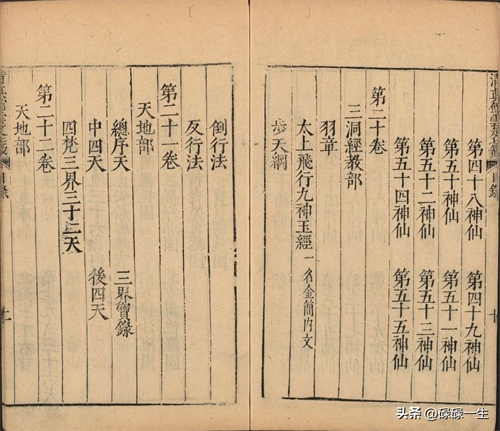 目錄
十
第四十八神仙 第四十九神仙
第五十神仙 第五十一神仙
第五十二神仙 第五十三神仙
第五十四神仙 第五十五神仙
第二十卷
三洞經教部
羽章
太上飛行九神玉經一名金簡內文
步天綱
倒行法
反行法
第二十一卷
天地部
總序天 三界寶錄
中四天 後四天
四梵三界三十二天
第二十二卷
天地部
目錄
十一
头条 @碌碌一生